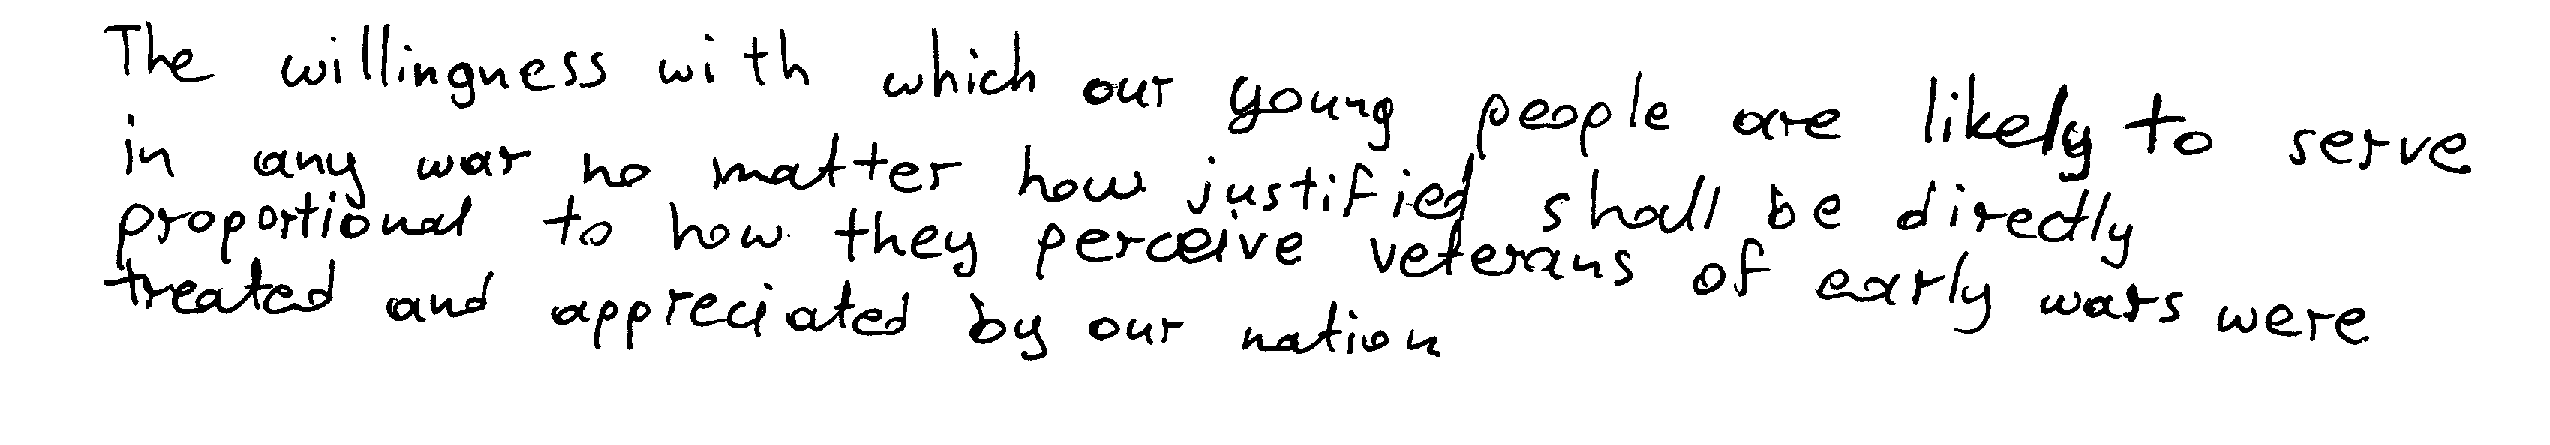 The willingness with which our young people are likely to serve
in any war no matter how justified shall be directly
proportional to how they perceive veterans of early wars were
treated and appreciated by our nation